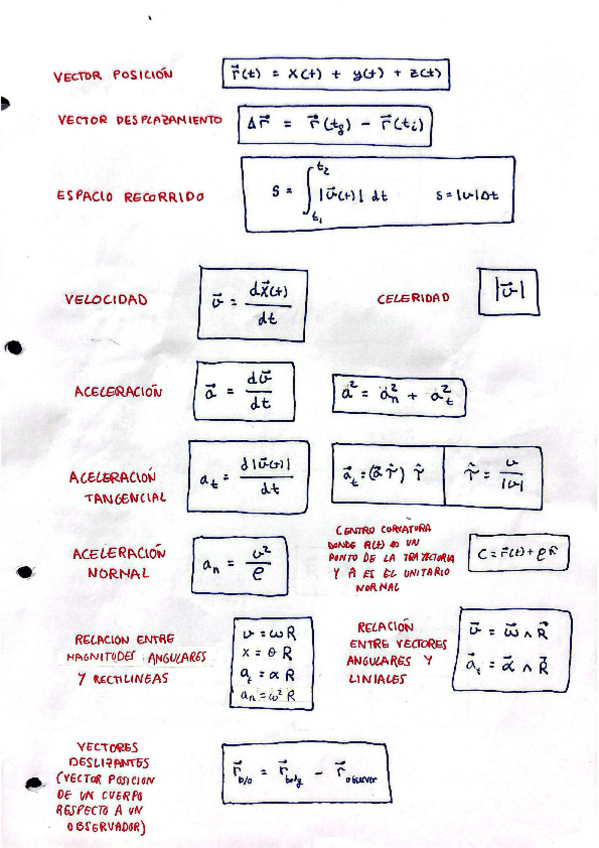 VECTOR POSICIÓN r⃗(t) = x(t) + y(t) + z(t)
VECTOR DESPLAZAMIENTO Δr⃗ = r⃗(t_f) − r⃗(t_i)
ESPACIO RECORRIDO S = ∫_{t₁}^{t₂} |v⃗(t)| dt S = |v|Δt
VELOCIDAD v⃗ = dx⃗(t)/dt CELERIDAD |v⃗|
ACELERACIÓN a⃗ = dv⃗/dt a² = a_n² + a_t²
ACELERACIÓN
TANGENCIAL
a_t = d|v⃗(t)|/dt a⃗_t = (a⃗ τ̂) τ̂ τ̂ = v/|v|
ACELERACIÓN
NORMAL
a_n = v²/ρ
CENTRO CORVATURA
DONDE R(t) es UN
PUNTO DE LA TRAYECTORIA
Y n̂ ES EL UNITARIO
NORMAL
C = r⃗(t) + ρ n̂
RELACION ENTRE
MAGNITUDES ANGULARES
Y RECTILINEAS
v = ωR
x = θ R
a_t = α R
a_n = ω² R
RELACIÓN
ENTRE VECTORES
ANGULARES Y
LINIALES
v⃗ = ω⃗ ∧ R⃗
a⃗_t = α⃗ ∧ R⃗
VECTORES
DESLIZANTES
(VECTOR POSICION
DE UN CUERPO
RESPECTO A UN
OBSERVADOR)
r⃗_b/o = r⃗_body − r⃗_observer